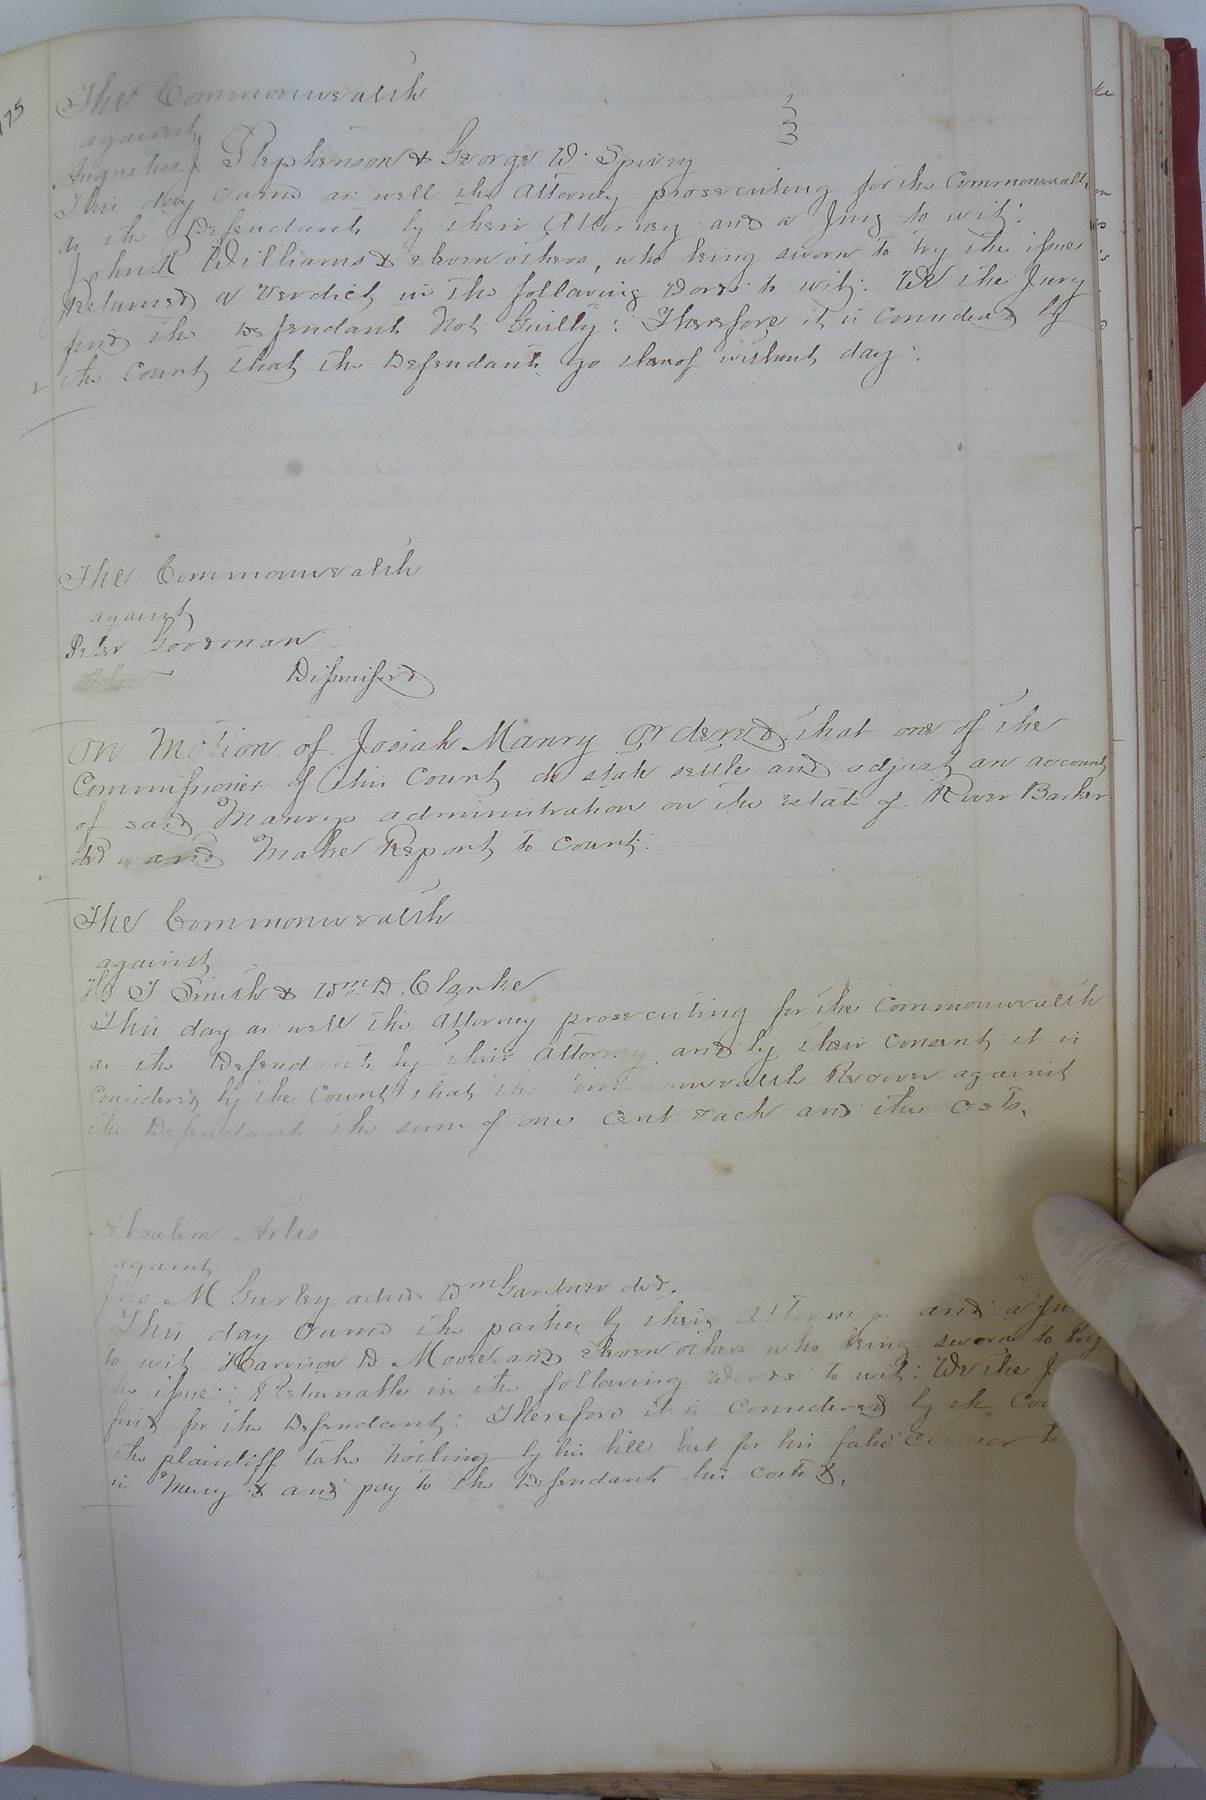 175
The Commonwealth
against
Augustus J. Stephenson & George W. Spivey
This day came as well the Attorney prosecuting for the Commonwealth
as the Defendants by their Attorney and a Jury to wit:
John R Williams & eleven others, who being sworn to try the issue
Returned a Verdict in the following words to wit: We the Jury
find the defendants Not Guilty: Therefore it is Considered by
the Court that the Defendants go thereof without day.
The Commonwealth
against
Peter Gooeman
Dismissed
On Motion of Josiah Manry Ordered that one of the
Commissioner of this Court do state settle and adjust an account
of said Manrys administration on the estate of River Barker
decd and Make Report to Court.
The Commonwealth
against
H. T Smith & Wm D. Clarke
This day as well the Attorney prosecuting for the Commonwealth
as the Defendants by their attorney and by their Consent it is
Considered by the Court that the Commonwealth Recover against
the Defendants the sum of one Cent each and the costs.
Absalem Artis
against
Jno M Gurley admr Wm Gardner decd.
This day Came the parties by their Attorneys and a Ju
to wit Harrison D Moore and eleven others who being sworn to try
the issue: Returnable in the following words to wit: We the J
find for the Defendant: Therefore it is Considered by the Cou
the plaintiff take nothing by his bill but for his false Clamor be
in Mercy & and pay to the Defendant his costs &.